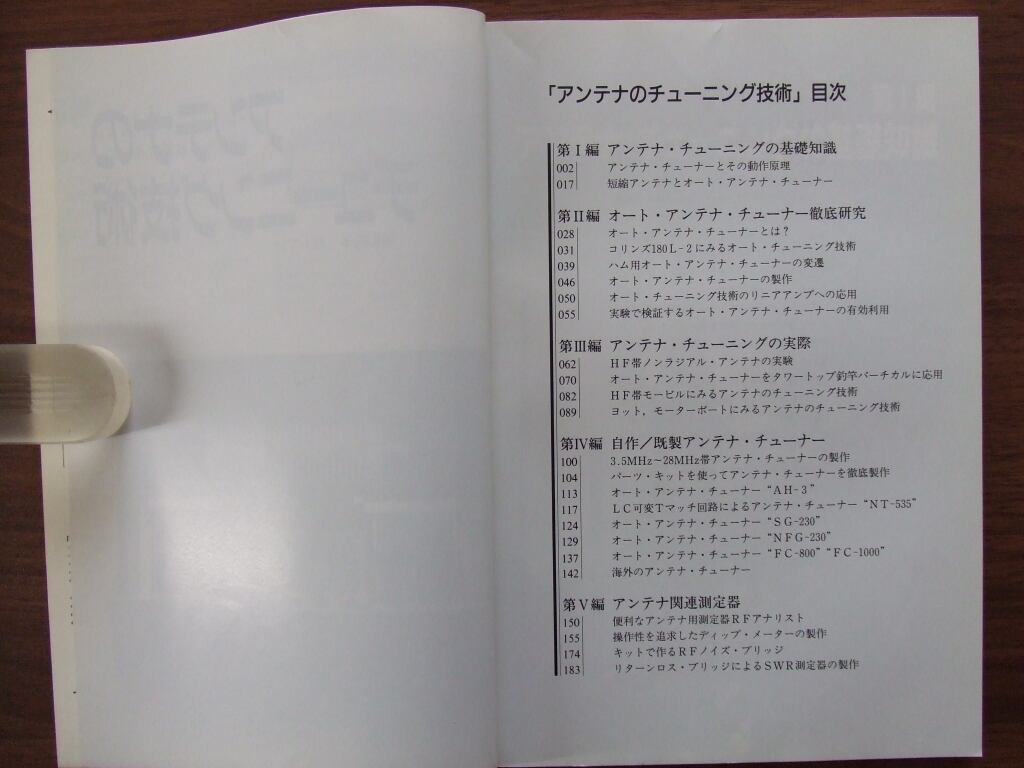 「アンテナのチューニング技術」目次
第Ⅰ編 アンテナ・チューニングの基礎知識
002 アンテナ・チューナーとその動作原理
017 短縮アンテナとオート・アンテナ・チューナー
第Ⅱ編 オート・アンテナ・チューナー徹底研究
028 オート・アンテナ・チューナーとは？
031 コリンズ180L-2にみるオート・チューニング技術
039 ハム用オート・アンテナ・チューナーの変遷
046 オート・アンテナ・チューナーの製作
050 オート・チューニング技術のリニアアンプへの応用
055 実験で検証するオート・アンテナ・チューナーの有効利用
第Ⅲ編 アンテナ・チューニングの実際
062 HF帯ノンラジアル・アンテナの実験
070 オート・アンテナ・チューナーをタワートップ釣竿バーチカルに応用
082 HF帯モービルにみるアンテナのチューニング技術
089 ヨット，モーターボートにみるアンテナのチューニング技術
第Ⅳ編 自作／既製アンテナ・チューナー
100 3.5MHz～28MHz帯アンテナ・チューナーの製作
104 パーツ・キットを使ってアンテナ・チューナーを徹底製作
113 オート・アンテナ・チューナー“AH-3”
117 LC可変Tマッチ回路によるアンテナ・チューナー“NT-535”
124 オート・アンテナ・チューナー“SG-230”
129 オート・アンテナ・チューナー“NFG-230”
137 オート・アンテナ・チューナー“FC-800”“FC-1000”
142 海外のアンテナ・チューナー
第Ⅴ編 アンテナ関連測定器
150 便利なアンテナ用測定器RFアナリスト
155 操作性を追求したディップ・メーターの製作
174 キットで作るRFノイズ・ブリッジ
183 リターンロス・ブリッジによるSWR測定器の製作